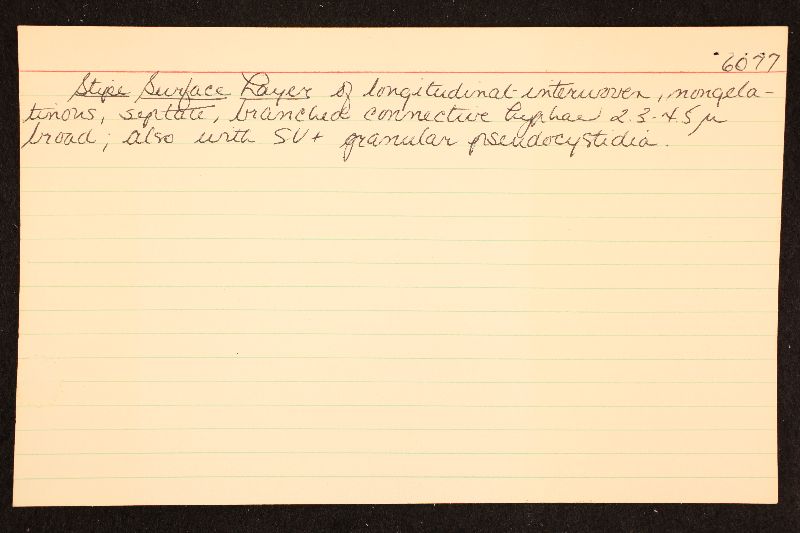 6077
Stipe Surface Layer of longitudinal-interwoven, nongela-
tinous, septate, branched connective hyphae 2.3-4.5 µ
broad; also with SV+ granular pseudocystidia.